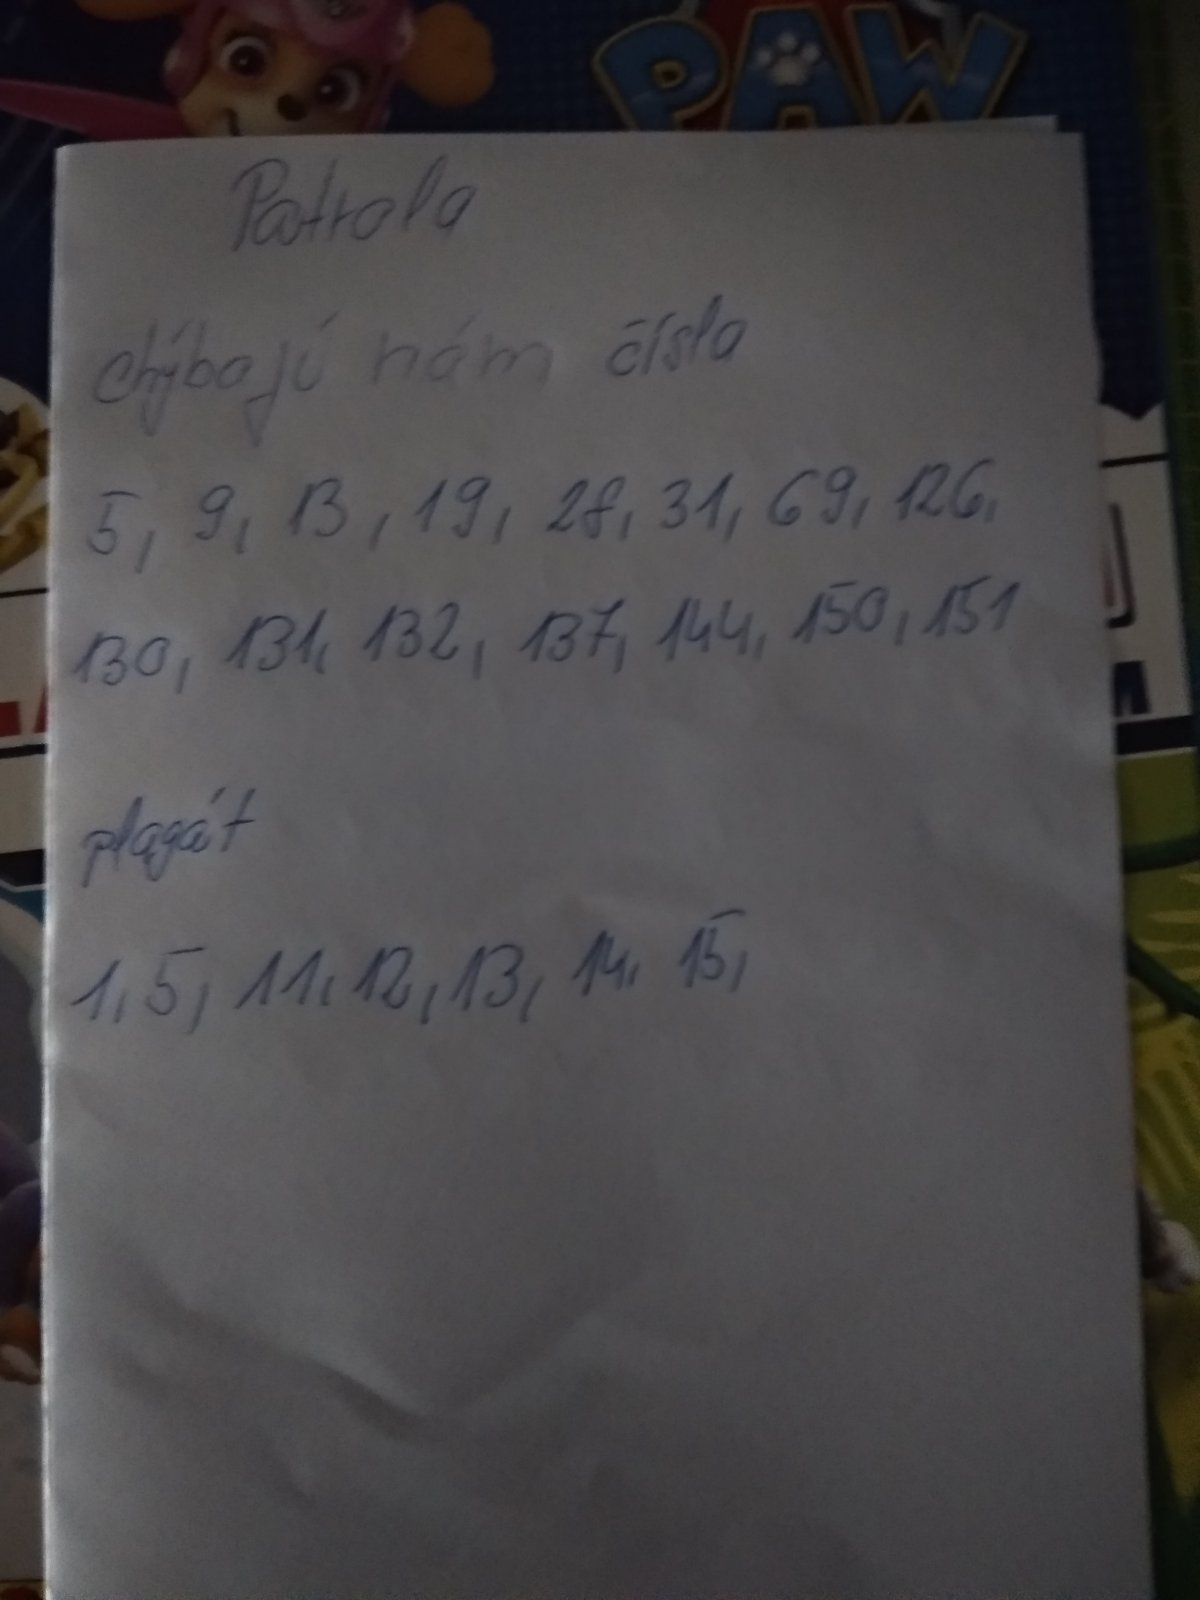 PAW
Patrola
chýbajú nám čísla
5, 9, 13, 19, 28, 31, 69, 126,
130, 131, 132, 137, 144, 150, 151
plagát
1, 5, 11, 12, 13, 14, 15,